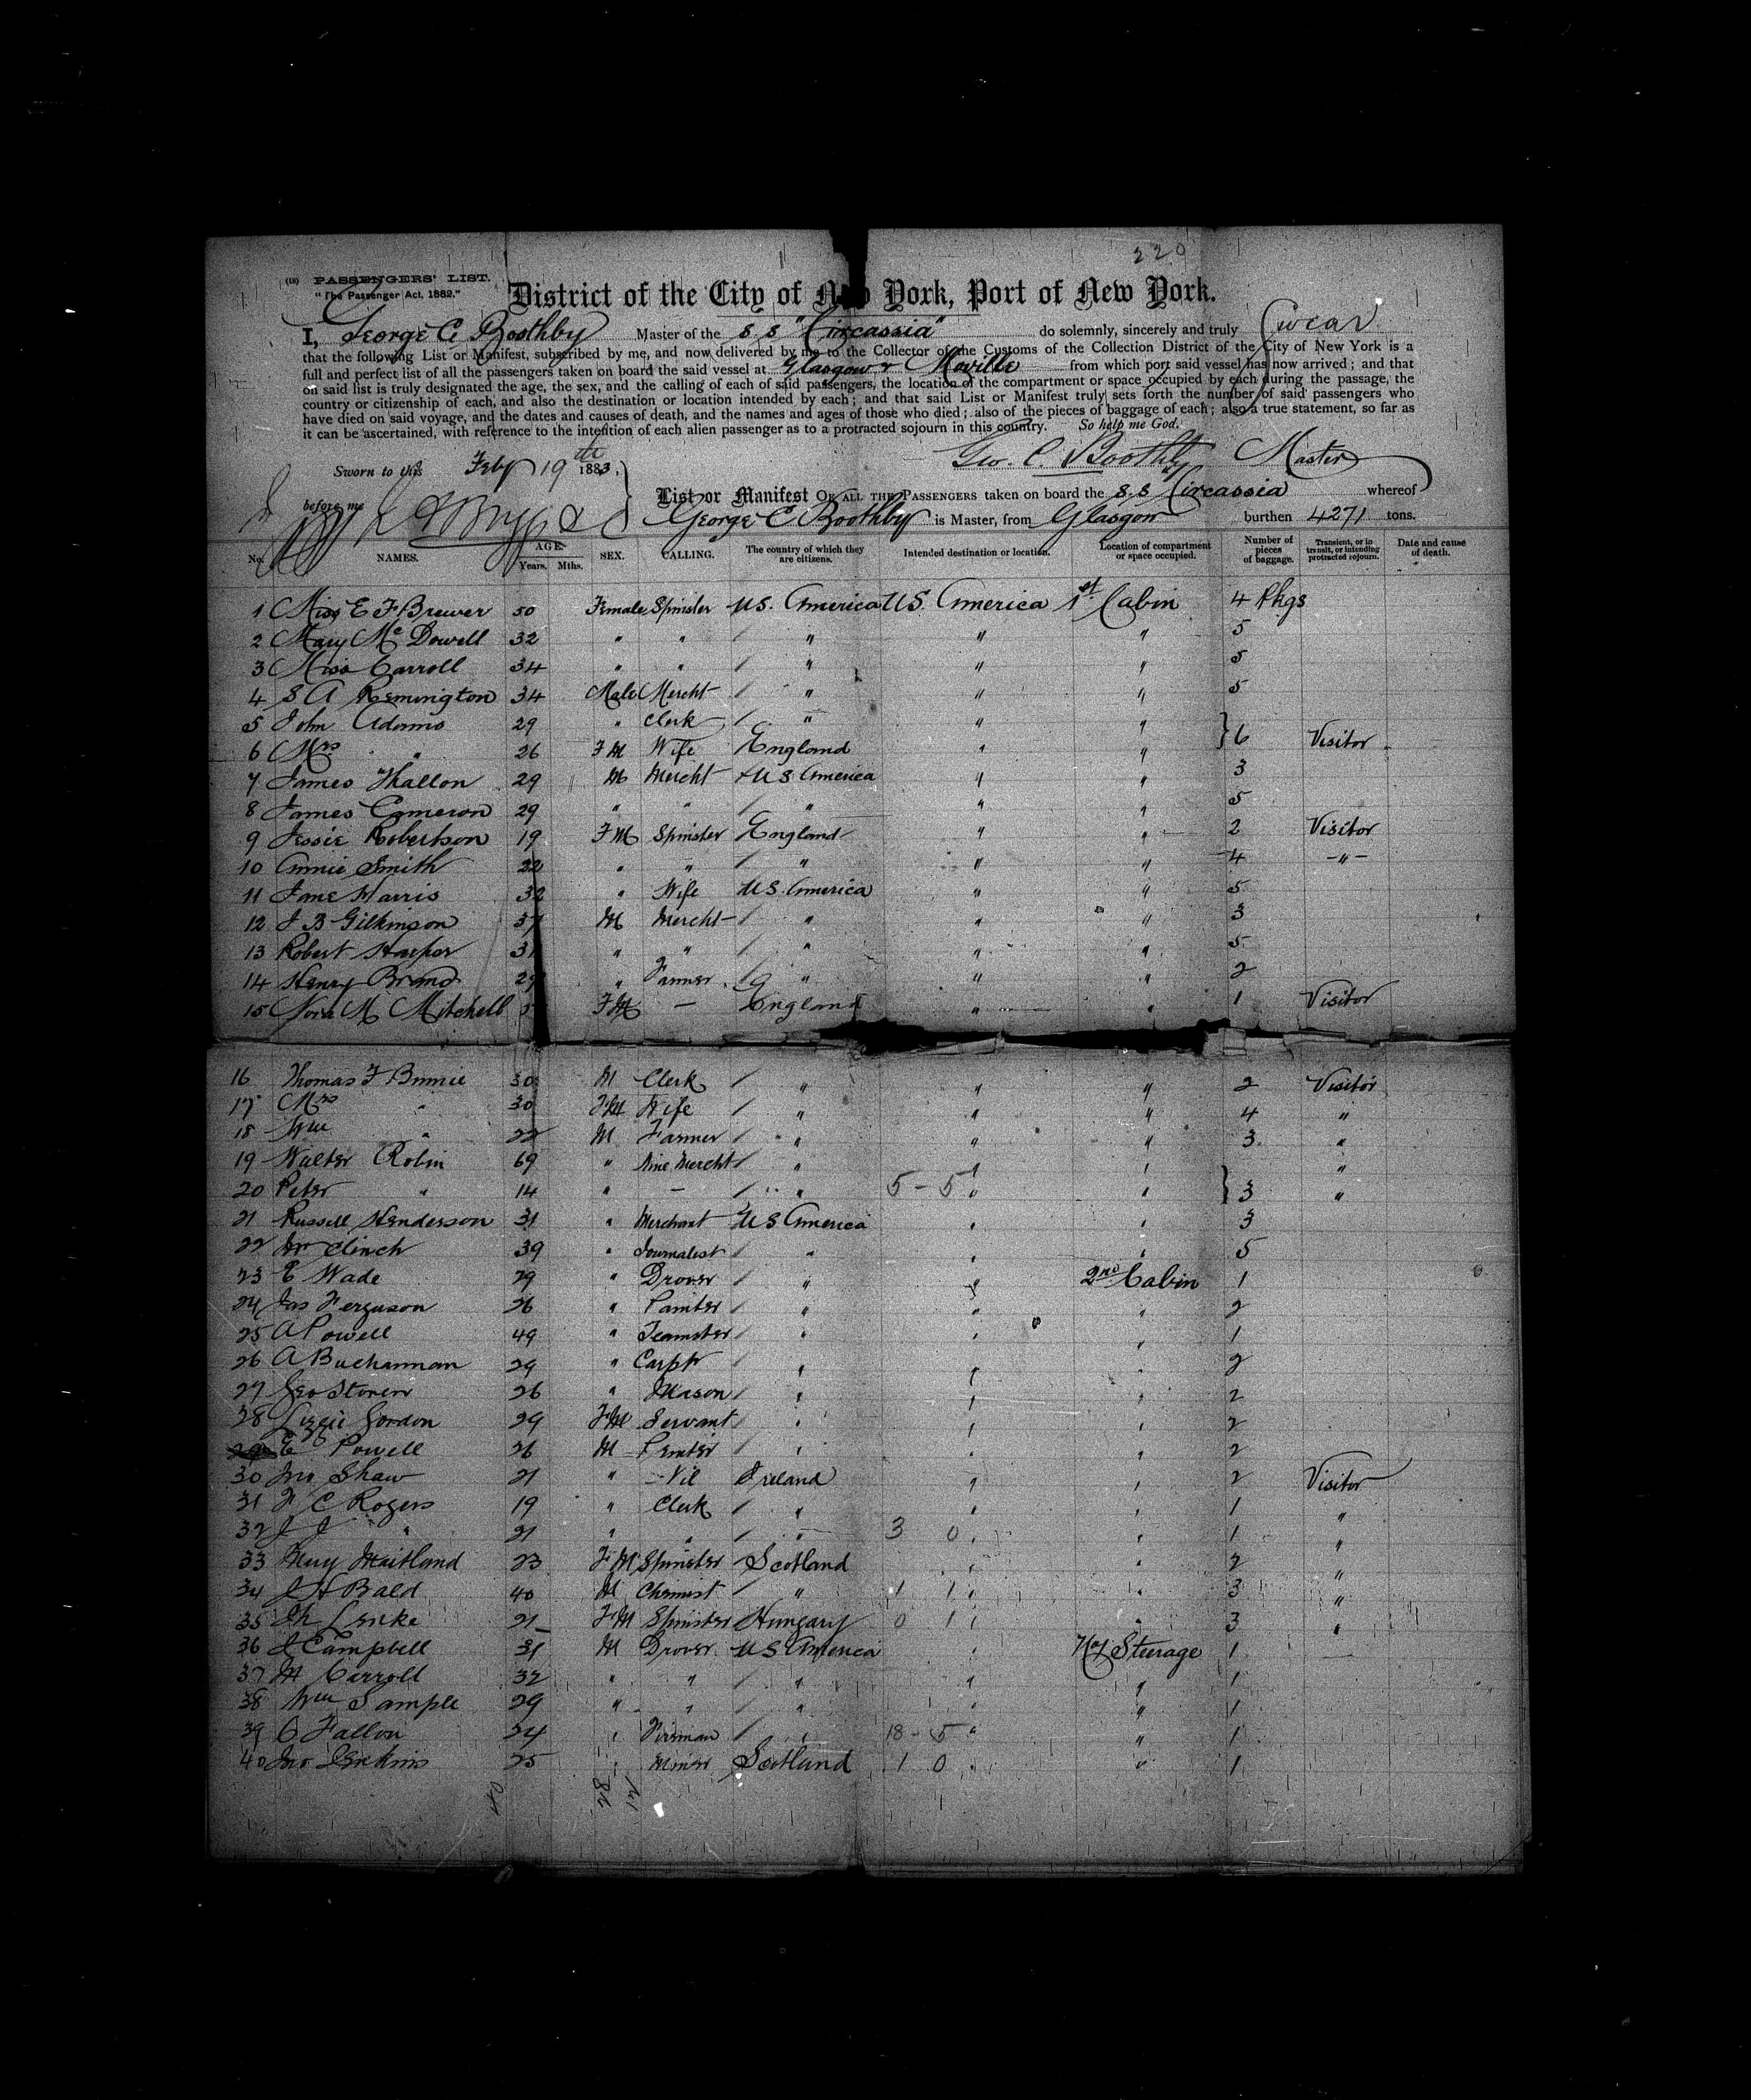 220
(18) PASSENGERS' LIST.
"The Passenger Act, 1882."
District of the City of New York, Port of New York.
I, George C Boothby Master of the s s "Circassia" do solemnly, sincerely and truly swear
that the following List or Manifest, subscribed by me, and now delivered by me to the Collector of the Customs of the Collection District of the City of New York is a
full and perfect list of all the passengers taken on board the said vessel at Glasgow & Moville from which port said vessel has now arrived; and that
on said list is truly designated the age, the sex, and the calling of each of said passengers, the location of the compartment or space occupied by each during the passage, the
country or citizenship of each, and also the destination or location intended by each; and that said List or Manifest truly sets forth the number of said passengers who
have died on said voyage, and the dates and causes of death, and the names and ages of those who died; also of the pieces of baggage of each; also a true statement, so far as
it can be ascertained, with reference to the intention of each alien passenger as to a protracted sojourn in this country. So help me God.
Geo. C. Boothby Master
Sworn to this Feby 19th 1883,
before me
List or Manifest OF ALL THE PASSENGERS taken on board the S.S Circassia whereof
George C Boothby is Master, from Glasgow burthen 4271 tons.
No. NAMES. AGE. Years. Mths. SEX. CALLING. The country of which they are citizens. Intended destination or location. Location of compartment or space occupied. Number of pieces of baggage. Transient, or in transit, or intending protracted sojourn. Date and cause of death.
1 Miss E F Brewer 50 Female Spinster U.S. America U.S. America 1st Cabin 4 Pkgs
2 Mary McDowell 32 " " / " " " 5
3 Miss Carroll 34 " " / " " " 5
4 S A Remington 34 Male Mercht / " " " 5
5 John Adams 29 " Clerk / " " "
6 Mrs " 26 F M Wife England " " } 6 Visitor
7 James Thallon 29 M Mercht U S America " " 3
8 James Cameron 29 " " / " " " 5
9 Jessie Robertson 19 F M Spinster England " " 2 Visitor
10 Annie Smith 22 " " / " " " 4 - " -
11 Jane Harris 32 " Wife U S. America " " 5
12 J B Gilkinson 37 M Mercht / " " " 3
13 Robert Harper 31 " " / " " " 5
14 Henry Brand 29 " Farmer / " " " 2
15 Nora M Mitchell F M — England " " 1 Visitor
16 Thomas F Binnie 30 M Clerk / " " " 2 Visitor
17 Mrs " 30 F M Wife / " " " 4 "
18 Wm " 22 M Farmer / " " " 3 "
19 Walter Robin 69 " Wine Mercht / " " " "
20 Peter " 14 " — / " 5 - 5 " " } 3 "
21 Russell Henderson 31 " Merchant U S America " " 3
22 Wm Clinch 39 " Journalist / " " " 5
23 E Wade 29 " Drover / " " 2nd Cabin 1
24 Jas Ferguson 26 " Painter / " " " 2
25 A Powell 49 " Teamster / " " " 1
26 A Buchannan 29 " Carptr / " " " 2
27 Geo 26 " Mason / " " " 2
28 Lizzie Gordon 29 F M Servant / " " " 2
29 E Powell 26 M / " " " 2
30 Jno Shaw 21 " Nil Ireland " " 2 Visitor
31 F C Rogers 19 " Clerk / " " " 1 "
32 J J " 21 " " / " 3 0 " " 1 "
33 May Maitland 23 F M Spinster Scotland " " 2 "
34 J H Bald 40 M Chemist / " 1 1 " " 3 "
35 Lenke 21 F M Spinster Hungary 0 1 " " 3 "
36 J Campbell 31 M Drover U S America " No 1 Steerage 1 —
37 M Carroll 32 " " / " " " 1
38 Wm Sample 29 " " / " " " 1
39 O Fallon 24 " Fireman / " 18 - 5 " " 1
40 Jno Jenkins 25 " Miner Scotland 1 0 " " 1
40